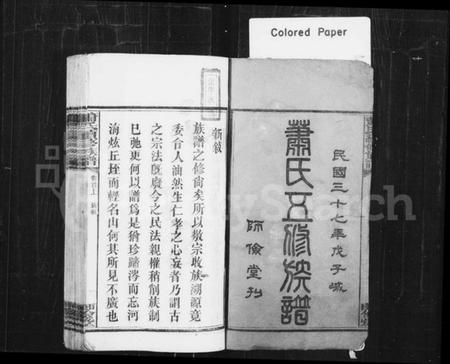 Colored Paper
民國三十七年戊子歲
蕭氏五修族譜
師儉堂刋
新敘
族譜之修尙矣所以敬宗收族溯源竟
委令人油然生仁孝之心哀者乃謂古
之宗法旣廢今之民法親權稍削族制
已弛更何以譜爲是猶珍蹄涔而忘河
海炫丘垤而輕名山何其所見不廣也
FamilySearch